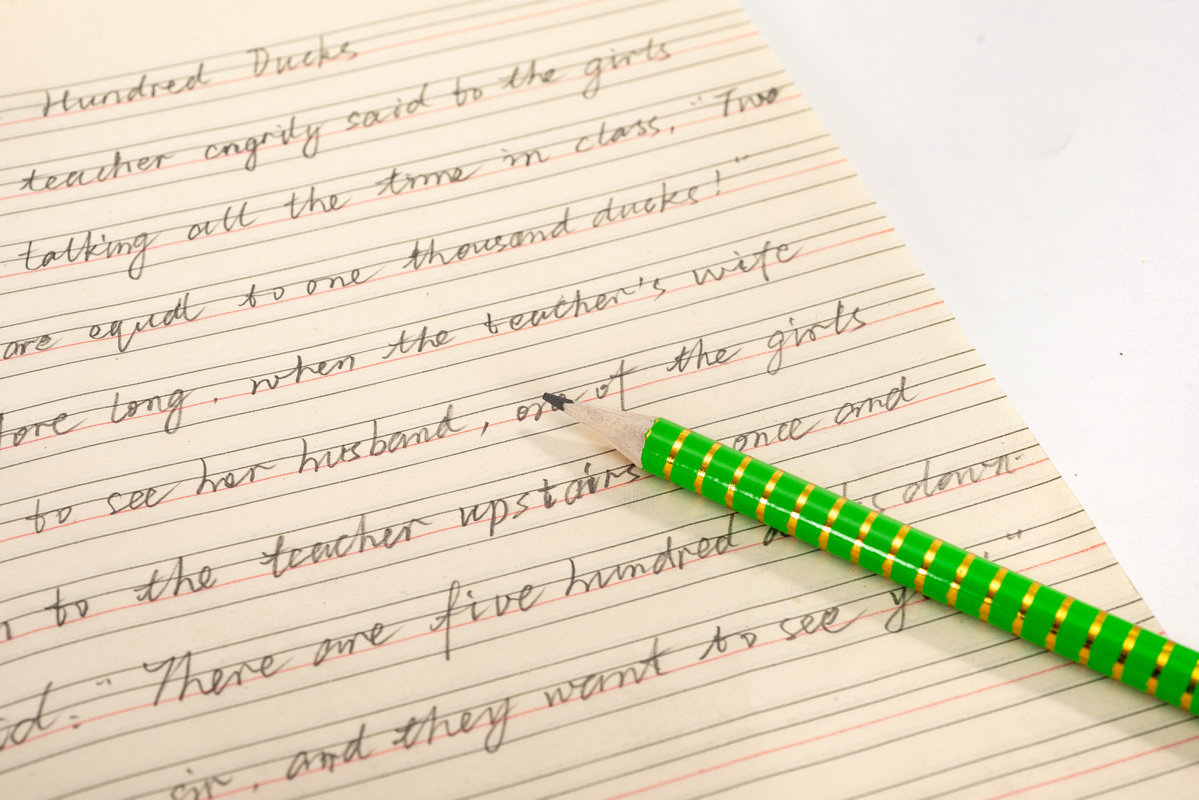 Hundred Ducks
teacher angrily said to the girls
talking all the time in class, "Two
are equal to one thousand ducks!"
fore long, when the teacher's wife
to see her husband, one of the girls
to the teacher upstairs once and
id: "There are five hundred down.
sir, and they want to see "